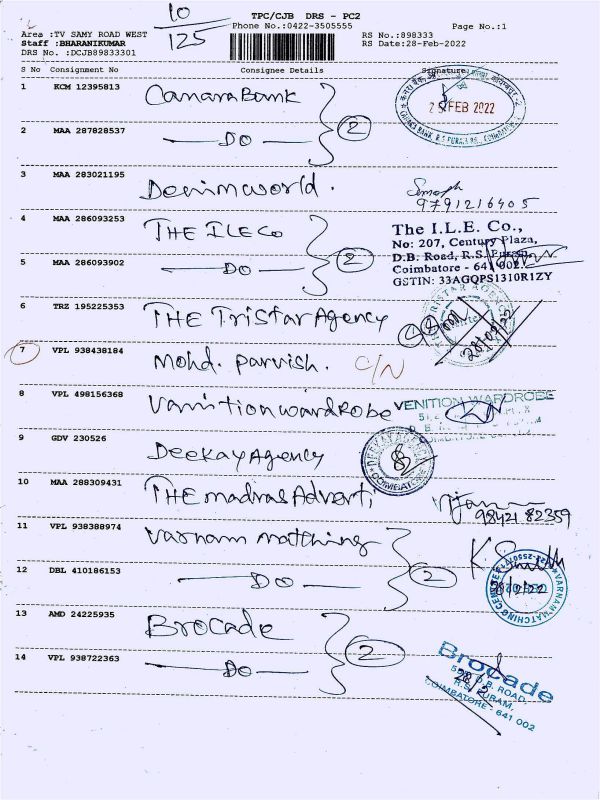 10
125
TPC/CJB DRS - PC2
Phone No.:0422-3505555
Page No.:1
Area :TV SAMY ROAD WEST
Staff :BHARANIKUMAR
DRS No. :DCJB89833301
RS No.:898333
RS Date:28-Feb-2022
S No Consignment No Consignee Details Signature
1 KCM 12395813 Canara Bank
2 FEB 2022
2 MAA 287828537 DO 2
3 MAA 283021195 Denimworld.
9791216405
4 MAA 286093253 THE ILE Co
The I.L.E. Co.,
No: 207, Century Plaza,
D.B. Road, R.S. Puram,
Coimbatore - 641 002.
GSTIN: 33AGQPS1310R1ZY
5 MAA 286093902 DO 2
6 TRZ 195225353 THE Tristar Agency
28/02/22
7 VPL 938438184 Mohd. Parvish. C/N
8 VPL 498156368 Vanitionwardrobe
VENITION WARDROBE
9 GDV 230526 Deekay Agency
DEEKAY AGENCY
COIMBATORE
10 MAA 288309431 THE madras Adverti
98421 82359
11 VPL 938388974 Varnam matching
12 DBL 410186153 DO 2
VARNAM MATCHING CENTRE
28/2/22
13 AMD 24225935 Brocade
14 VPL 938722363 DO 2
Brocade
D.B. ROAD,
R.S. PURAM,
COIMBATORE - 641 002
28/2